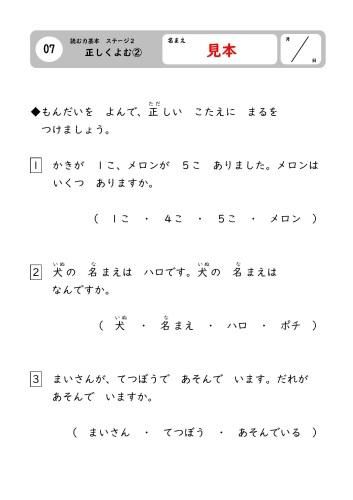 07
読む力基本 ステージ2
正しくよむ②
名まえ
見本
月
日
◆もんだいを よんで、正しい こたえに まるを
ただ
つけましょう。
1 かきが 1こ、メロンが 5こ ありました。メロンは
いくつ ありますか。
( 1こ ・ 4こ ・ 5こ ・ メロン )
いぬ な いぬ な
2 犬の 名まえは ハロです。犬の 名まえは
なんですか。
いぬ な
( 犬 ・ 名まえ ・ ハロ ・ ポチ )
3 まいさんが、てつぼうで あそんで います。だれが
あそんで いますか。
( まいさん ・ てつぼう ・ あそんでいる )